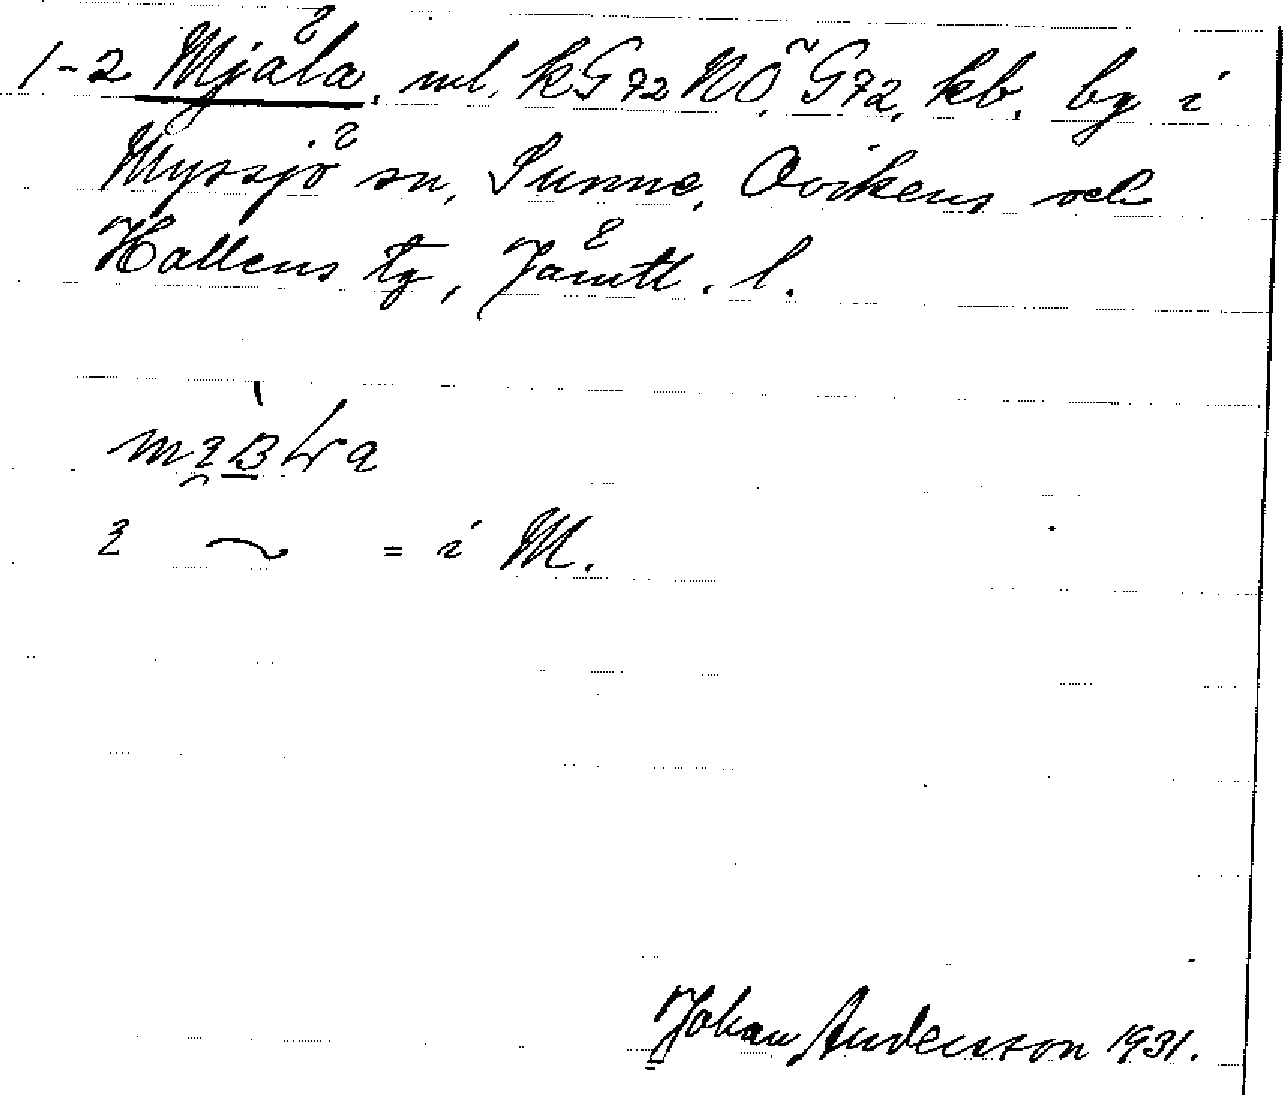 1-2 Mjåla, ml. kG72 NÖ. G72, kb. by i
Myssjö sn, Sunne, Ovikens och
Hallens tg, Jämtl. l.
= i M.
Johan Anderson 1931.